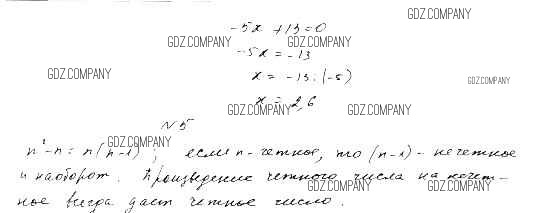 -5x + 13 = 0
GDZ.COMPANY
GDZ.COMPANY GDZ.COMPANY
-5x = -13
GDZ.COMPANY
x = -13 : (-5)
GDZ.COMPANY
x = 2,6
GDZ.COMPANY GDZ.COMPANY
N5
GDZ.COMPANY
n²-n = n(n-1), если n-четное, то (n-1) - нечетное
и наоборот. Произведение четного числа на нечет-
GDZ.COMPANY GDZ.COMPANY
ное всегда дает четное число.